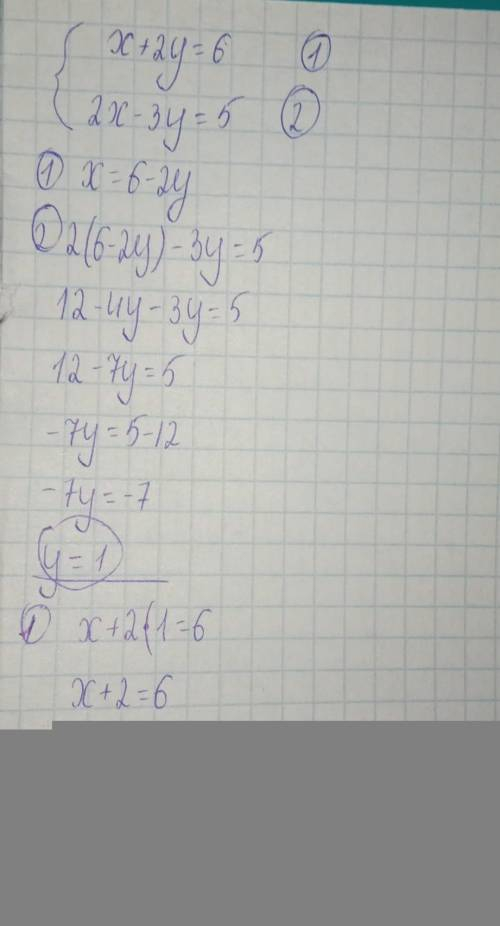 x+2y=6 ①
2x-3y=5 ②
① x=6-2y
② 2(6-2y)-3y=5
12-4y-3y=5
12-7y=5
-7y=5-12
-7y=-7
y=1
① x+2(1=6
x+2=6